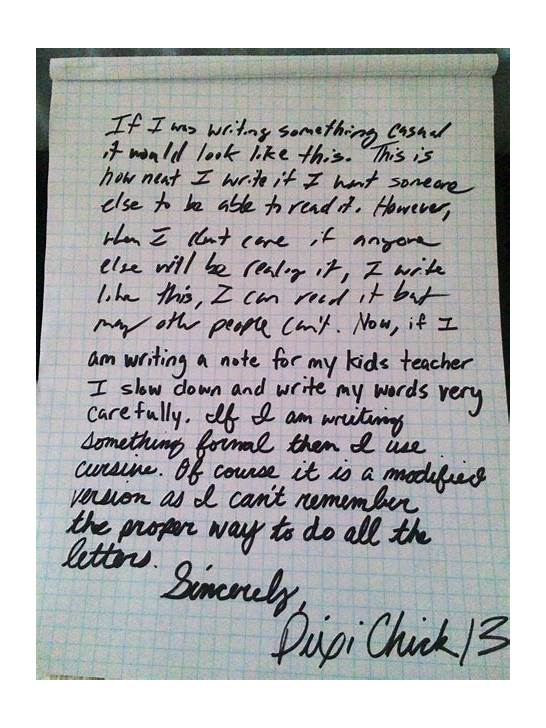 If I was writing something casual
it would look like this. This is
how neat I write if I want someone
else to be able to read it. However,
when I don't care if anyone
else will be reading it, I write
like this, I can read it but
many other people can't. Now, if I
am writing a note for my kids teacher
I slow down and write my words very
carefully. If I am writing
something formal then I use
cursive. Of course it is a modified
version as I can't remember
the proper way to do all the
letters.
Sincerely,
Dixi Chick 13